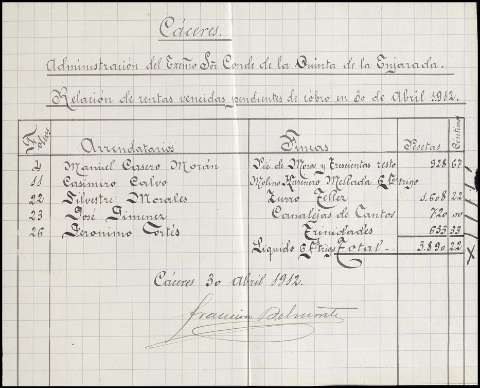 Cáceres.
Administración del Exemo Sõr Conde de la Quinta de la Enjarada.
Relación de rentas vencidas pendientes de cobro en 30 de Abril 1.912.
Folios Arrendatarios Fincas Pesetas Centimos
4 Manuel Casero Morán de Mora y Trescientas resto 928 67
11 Casimiro Calvo Molino Mellada trigo
22 Silvestre Morales Zurro Tellez 1.608 22
23 José Gimenez Canalejas de Cantos 720 00
26 Geronimo Cortés Trinidades 633 33
Liquido Total 3.890 22
Cáceres 30 Abril 1.912.
Francisco Belmonte